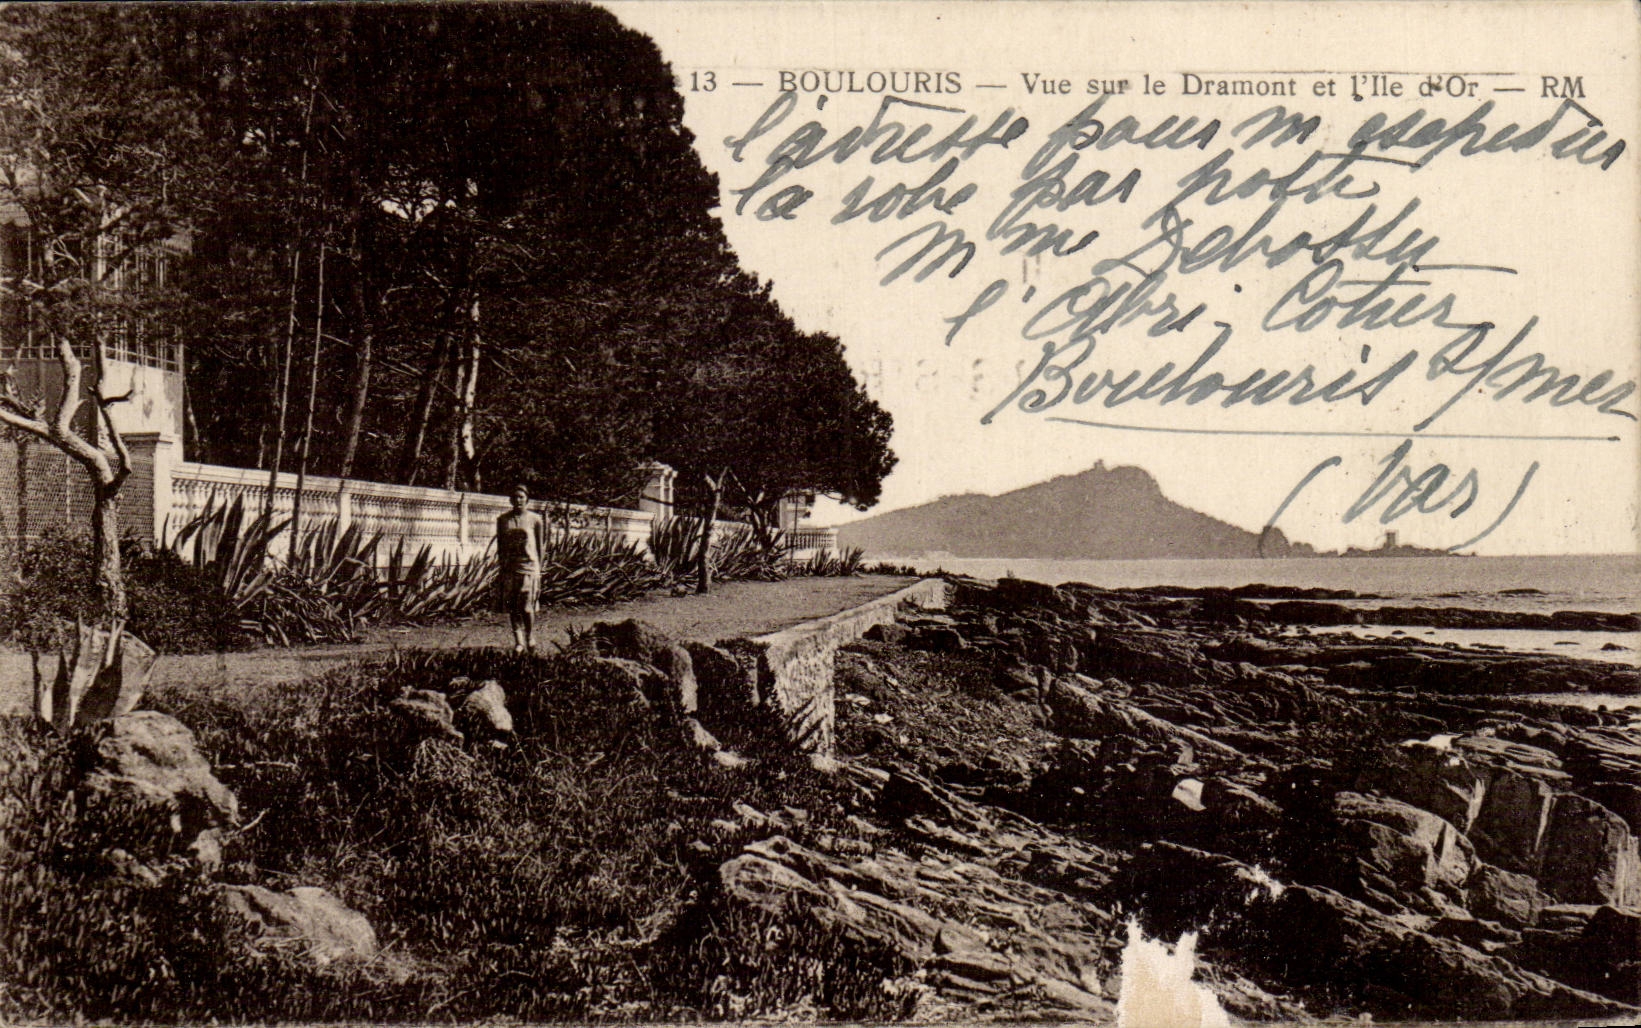 13 — BOULOURIS — Vue sur le Dramont et l'Ile d'Or — RM
l'adresse pour m'expedier
la robe par poste
Mme Debossu
l'Abri. Cotier
Boulouris s/mer
(Var)